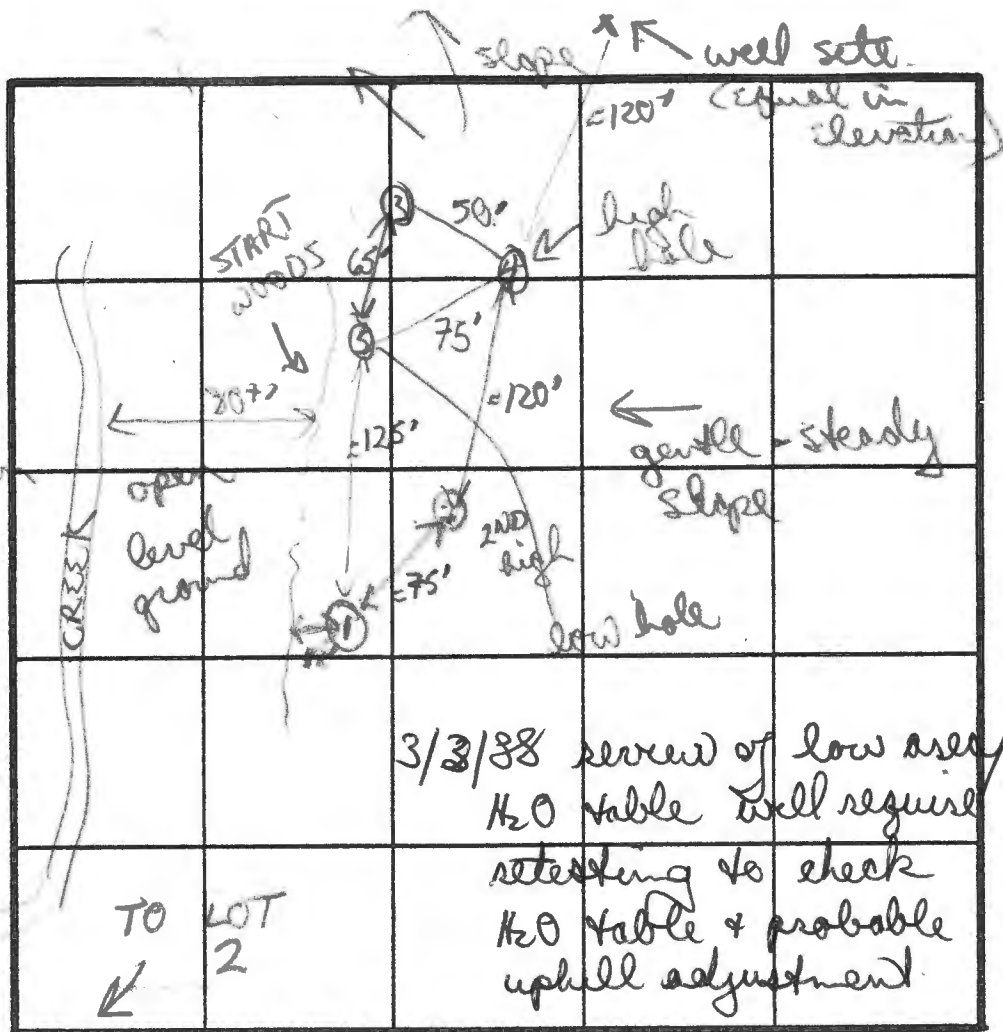 slope
well site
(equal in
elevation)
≈120'
3
50'
high
hole
START
WOODS
65'
4
5
75'
≈120'
≈125'
gentle - steady
slope
open
level
ground
CREEK
2ND
high
≈75'
1
low hole
3/3/88 review of low area
H2O table will require
retesting to check
H2O table & probable
uphill adjustment
TO LOT
2